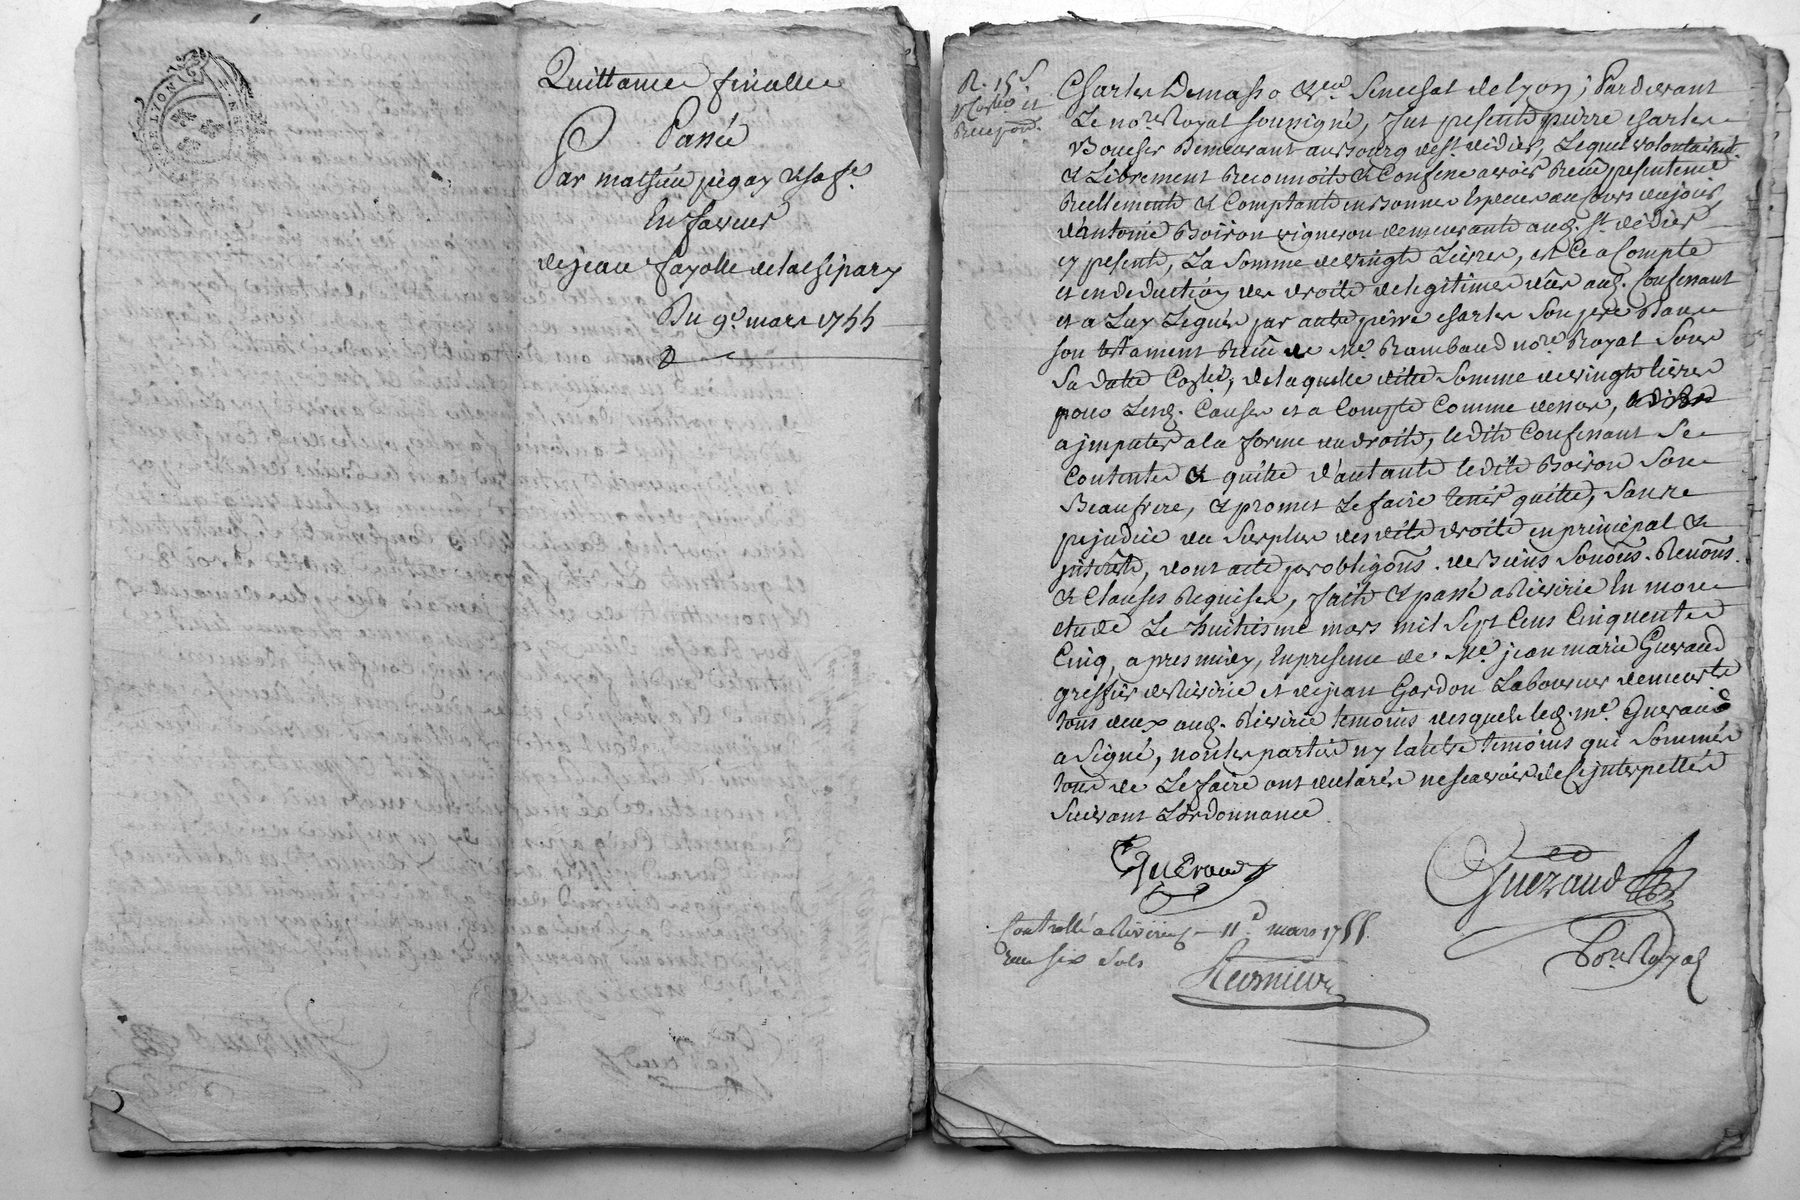 DE LYON
Quittance finalle
Passée
Par mathieu pigay & sa fe.
En faveur
de jean fayolle de la chipary
Du 9e. mars 1755
R. 15s
Charles Demasso Chier Senechal de Lyon; Pardevant
Le nore. Royal soussigné, fut présent pierre charles
Boucher Demeurant au Bourg de st. didier, Lequel volontairemt.
& Librement Reconnoit & Confesse avoir Reçû présentemt
Reellement & Comptant en Bonnes Especes au cours de ce jour,
d'antoine Boiron vigneron demeurant aud. St. didier
cy présent, La Somme de vingt Livres, et Ce a Compte
et en deduction des droits de legitime dûs aud. Confessant
et a Luy Legués par autre pierre charles Son père Dans
son testament Reçû de Me. Rambaud nore. Royal Sous
Sa datte, de laquelle ditte Somme de vingt livres
pour Lesd. Causes et a Compte Comme dessus,
a jmputer a la forme du droit, ledit Confessant Se
Contente & quitte d'autant ledit Boiron Son
Beaufrere, & promet Le faire tenir quitte, Sans
préjudice du Surplus desdits droits en principal &
jnterets, dont acte par obligons. de Biens Soumons. Renons.
& Clauses Requises, fait & passé a Riverie En mon
etude Le huitieme mars mil Sept Cens Cinquente
Cinq, apres midy, En presence de Me. jean marie Gueraud
greffier de Riverie et de jean Gardon Laboureur demeurts
tous deux aud. Riverie temoins desquels led. me. Gueraud
a Signé, non les parties ny l'autre temoins qui Sommés
tous de Le faire ont declarés ne scavoir de ce jnterpellés
Suivant L'ordonnance
Gueraud
Gueraud
Nore Royal
Controllé a Riverie le 11e. mars 1755
Reçu six sols